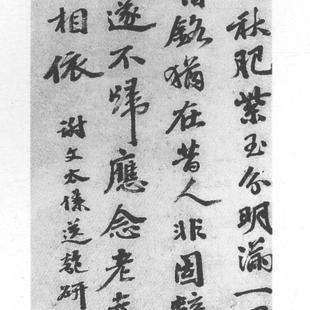 秋肥紫玉分明滿一
銘猶在昔人非固
遂不歸應念老
相依 謝文太僕送研